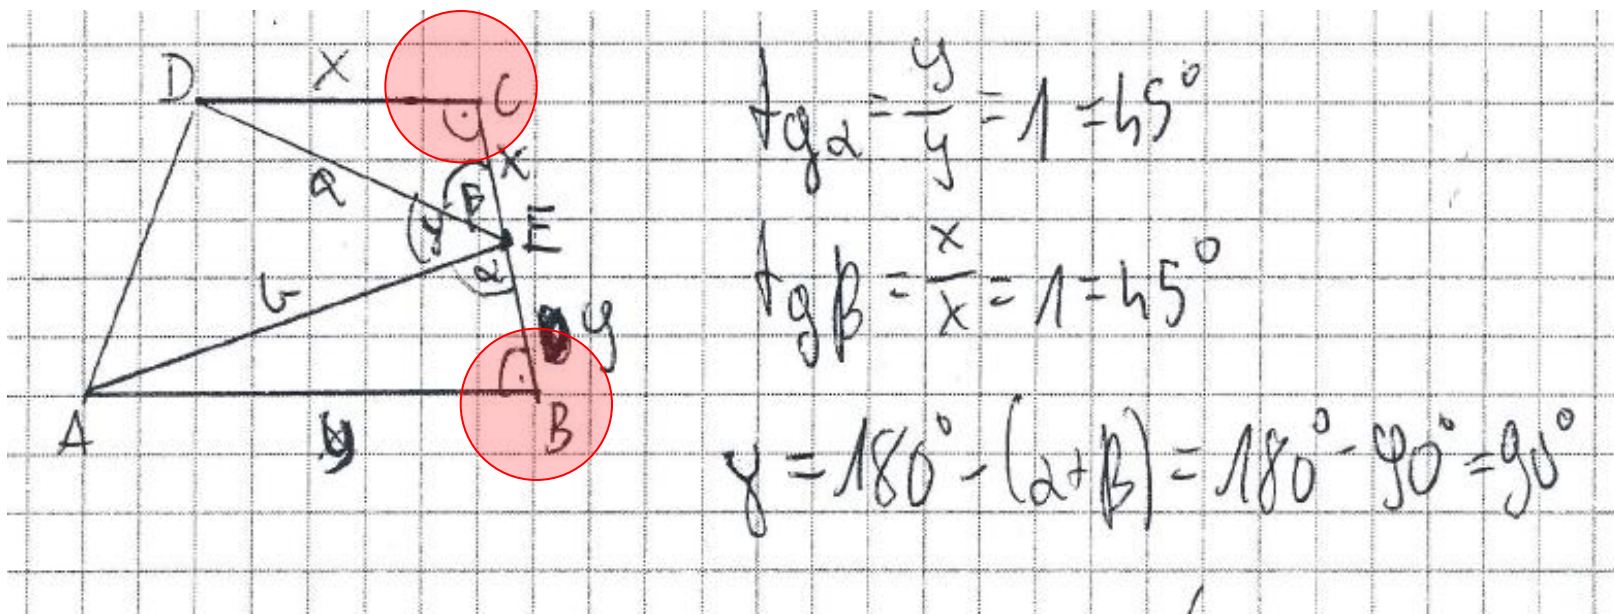 D x C
x
a β
γ E
α
b
y
A y B
tgα = y/y = 1 = 45°
tgβ = x/x = 1 = 45°
γ = 180° - (α+β) = 180° - 90° = 90°